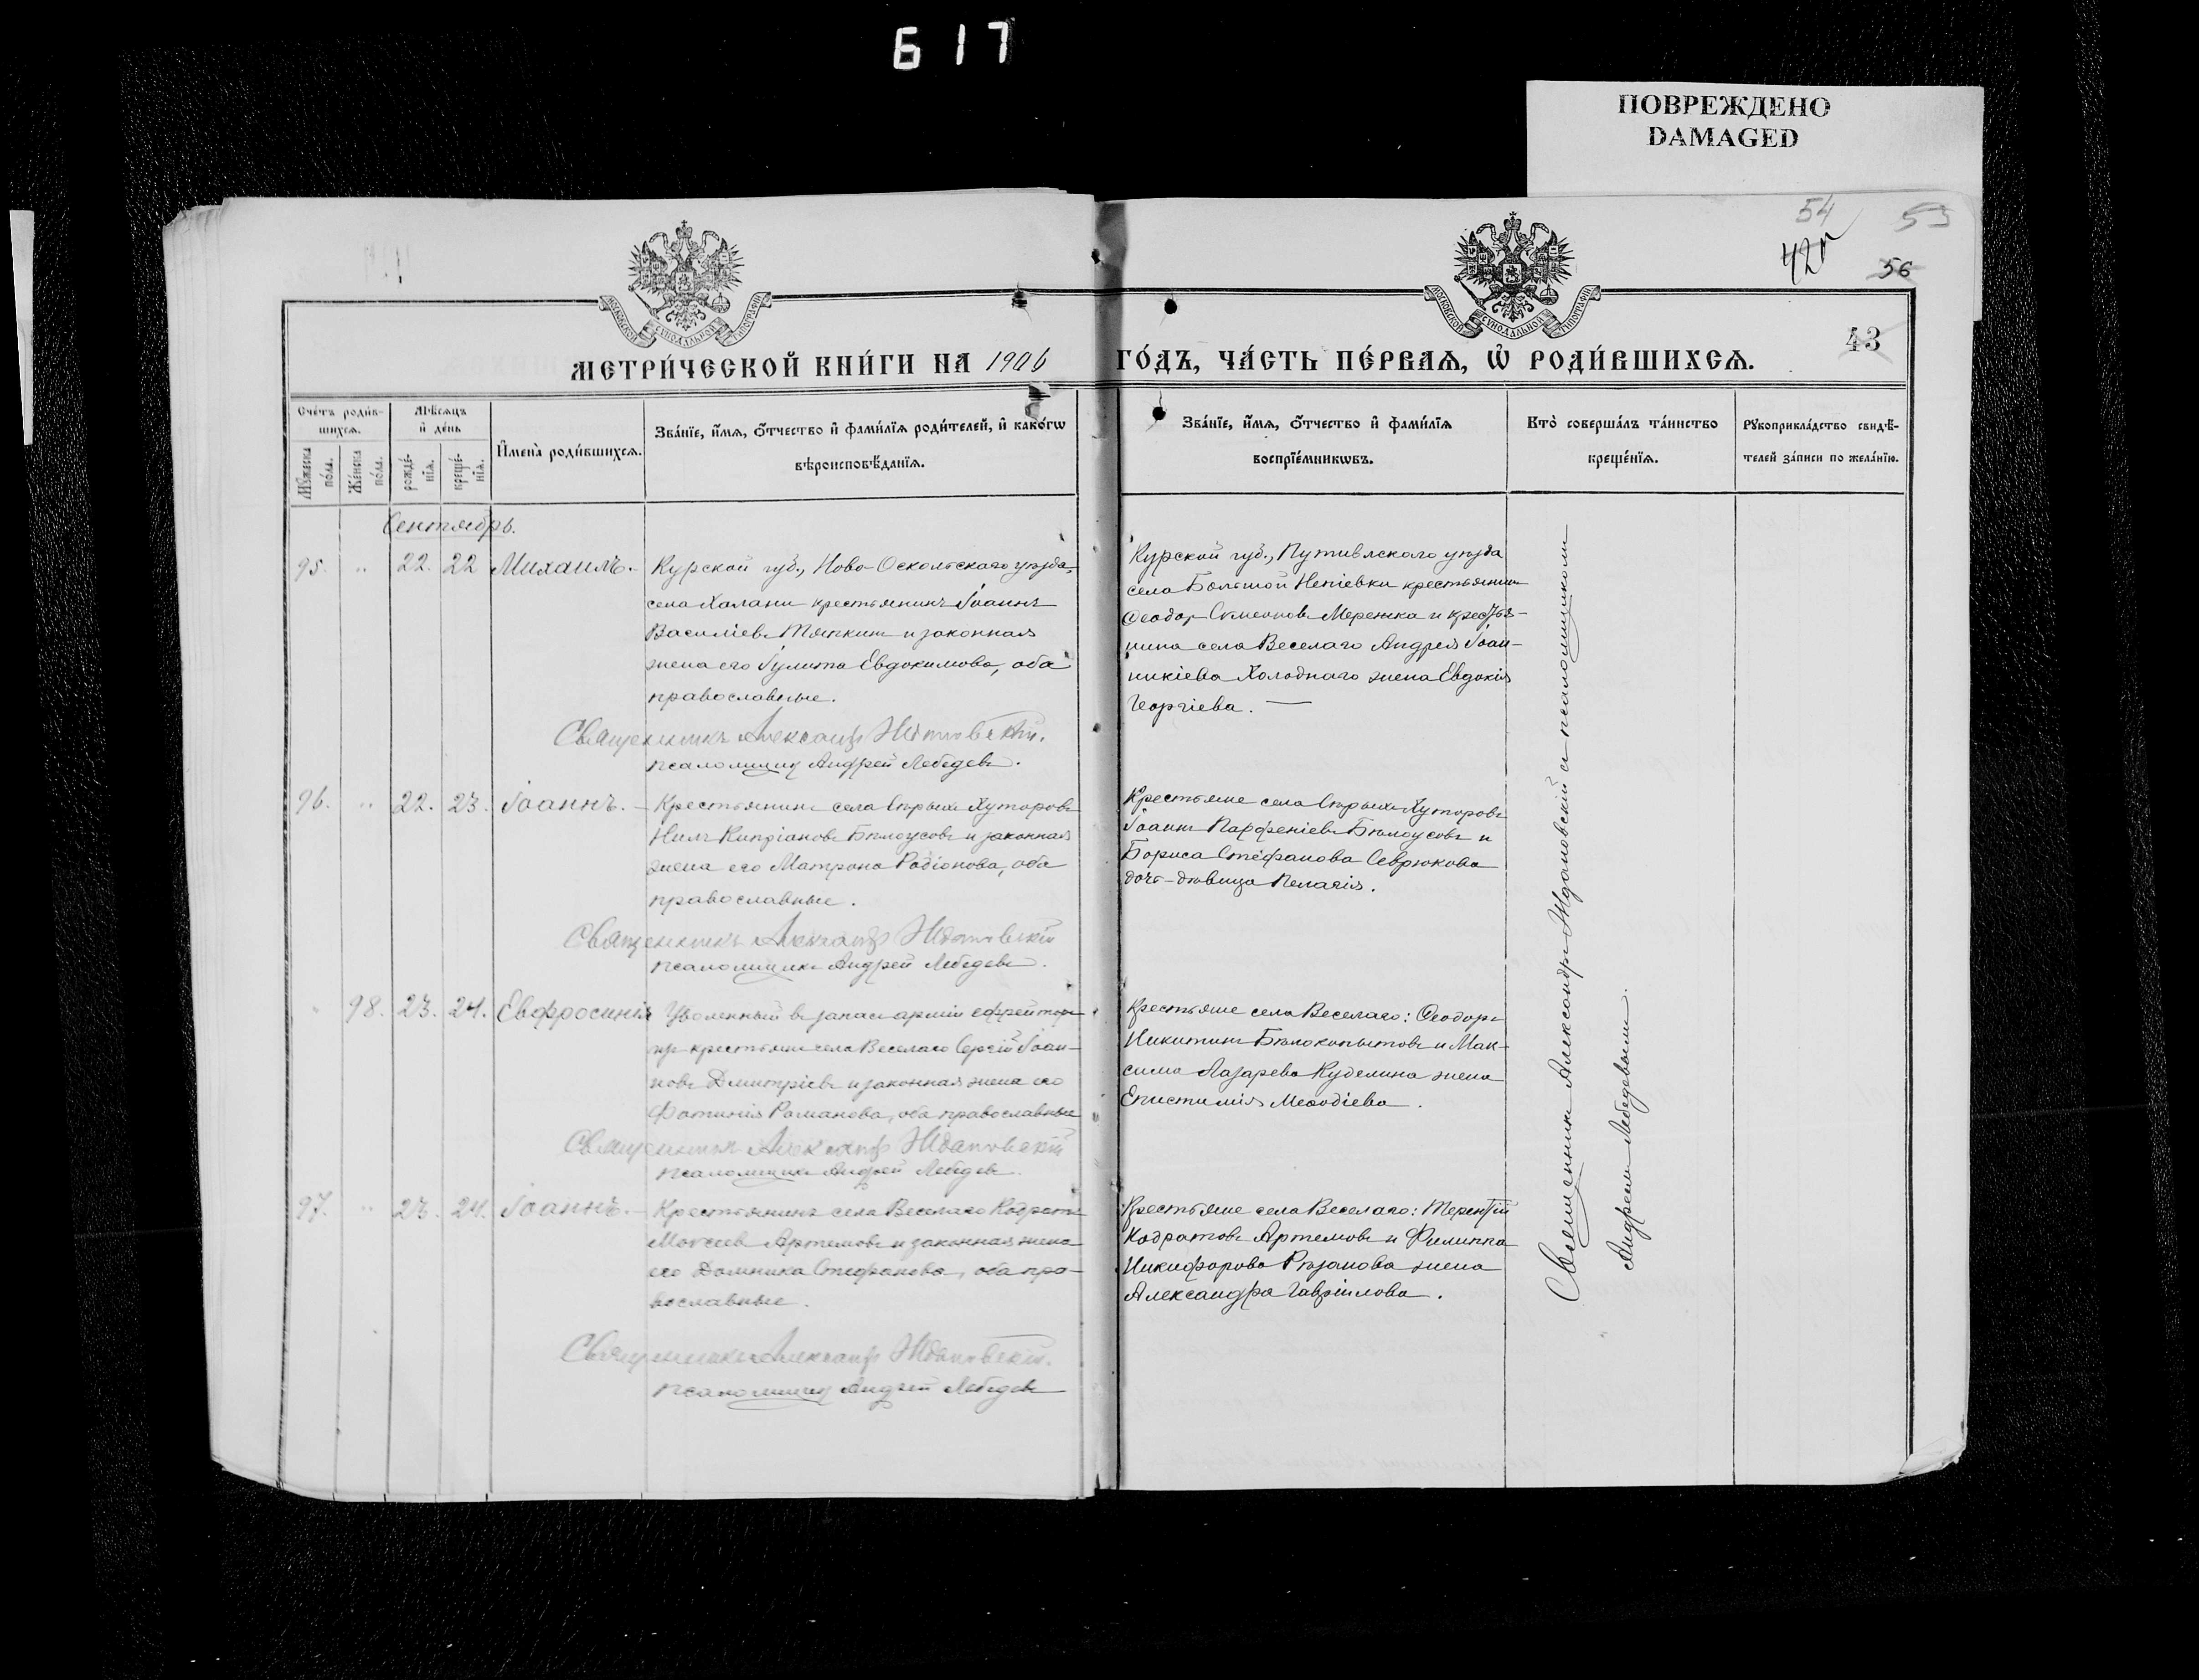 617
ПОВРЕЖДЕНО
DAMAGED
54
53
420
56
43
МОСКОВСКОЙ СУНОДАЛЬНОЙ ТИПОГРАФІИ
МОСКОВСКОЙ СУНОДАЛЬНОЙ ТИПОГРАФІИ
МЕТРИ́ЧЕСКОЙ КНИ́ГИ НА 1906
ГО́ДЪ, ЧА́СТЬ ПЕ́РВАѦ, Ѡ҆ РОДИ́ВШИХСѦ.
Сче́тъ роди́в-
шихсѧ.
Мꙋ́жеска по́ла.
Же́нска по́ла.
Мѣ́сѧцъ
и҆ де́нь
рожде́-
нїѧ.
креще́-
нїѧ.
И҆мена̀ роди́вшихсѧ.
Зва́нїе, и҆́мѧ, ѻ҆́тчество и҆ фами́лїѧ роди́телей, и҆ како́гѡ
вѣроисповѣ́данїѧ.
Зва́нїе, и҆́мѧ, ѻ҆́тчество и҆ фами́лїѧ
воспрїе́мникѡвъ.
Кто̀ соверша́лъ та́инство
креще́нїѧ.
Рꙋкоприкла́дство свидѣ́-
телей за́писи по жела́нїю.
Сентябрь.
95. " 22. 22 Михаилъ.
Курской губ., Ново-Оскольскаго уѣзда,
села Халани крестьянинъ Іоаннъ
Василіевъ Тяпкинъ и законная
жена его Іулита Евдокимова, оба
православные.
Священникъ Александръ Ждановскій.
псаломщикъ Андрей Лебедевъ.
Курской губ., Путивлскаго уѣзда
села Большой Непіевки крестьянинъ
Ѳеодоръ Симеоновъ Мережка и крестья-
нина села Веселаго Андрея Іоан-
никіева Холоднаго жена Евдокія
Георгіева. —
96. " 22. 23. Іоаннъ. —
Крестьянинъ села Сѣрыхъ Хуторовъ
Нилъ Кипріановъ Бѣлоусовъ и законная
жена его Матрона Родіонова, оба
православные.
Священникъ Александръ Ждановскій
псаломщикъ Андрей Лебедевъ.
Крестьяне села Сѣрыхъ Хуторовъ
Іоаннъ Парфеніевъ Бѣлоусовъ и
Бориса Стефанова Севрюкова
дочь-дѣвица Пелагія.
" 98. 23. 24. Евфросинія
Уволенный въ запасъ арміи ефрейторъ
изъ крестьянъ села Веселаго Сергій Іоан-
новъ Димитріевъ и законная жена его
Фотинія Романова, оба православные
Священникъ Александръ Ждановскій
псаломщикъ Андрей Лебедевъ.
Крестьяне села Веселаго: Ѳеодоръ
Никитинъ Бѣлокопытовъ и Мак-
сима Лазарева Куделина жена
Епистимія Меѳодіева.
97. " 23. 24. Іоаннъ. —
Крестьянинъ села Веселаго Кодратъ
Моѵсеевъ Артемовъ и законная жена
его Домника Стефанова, оба пра-
вославные.
Священникъ Александръ Ждановскій.
псаломщикъ Андрей Лебедевъ
Крестьяне села Веселаго: Терентій
Кодратовъ Артемовъ и Филиппа
Никифорова Рѣзанова жена
Александра Гавріилова.
Священникъ Александръ Ждановскій съ псаломщикомъ
Андреемъ Лебедевымъ.